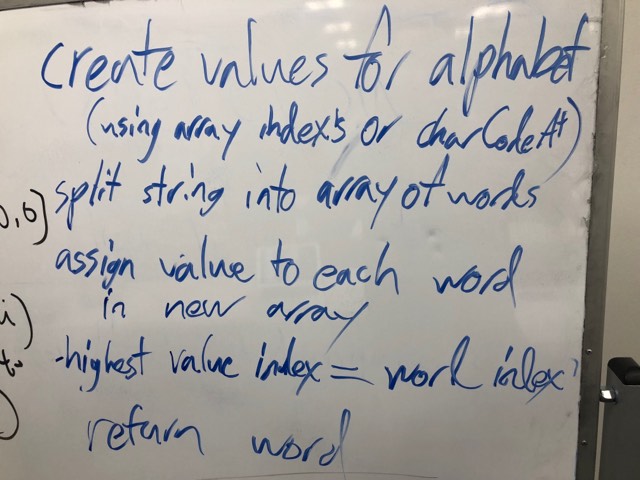 create values for alphabet
(using array index's or charCodeAt)
0,6]
split string into array of words
assign value to each word
in new array
-highest value index = word index
return word